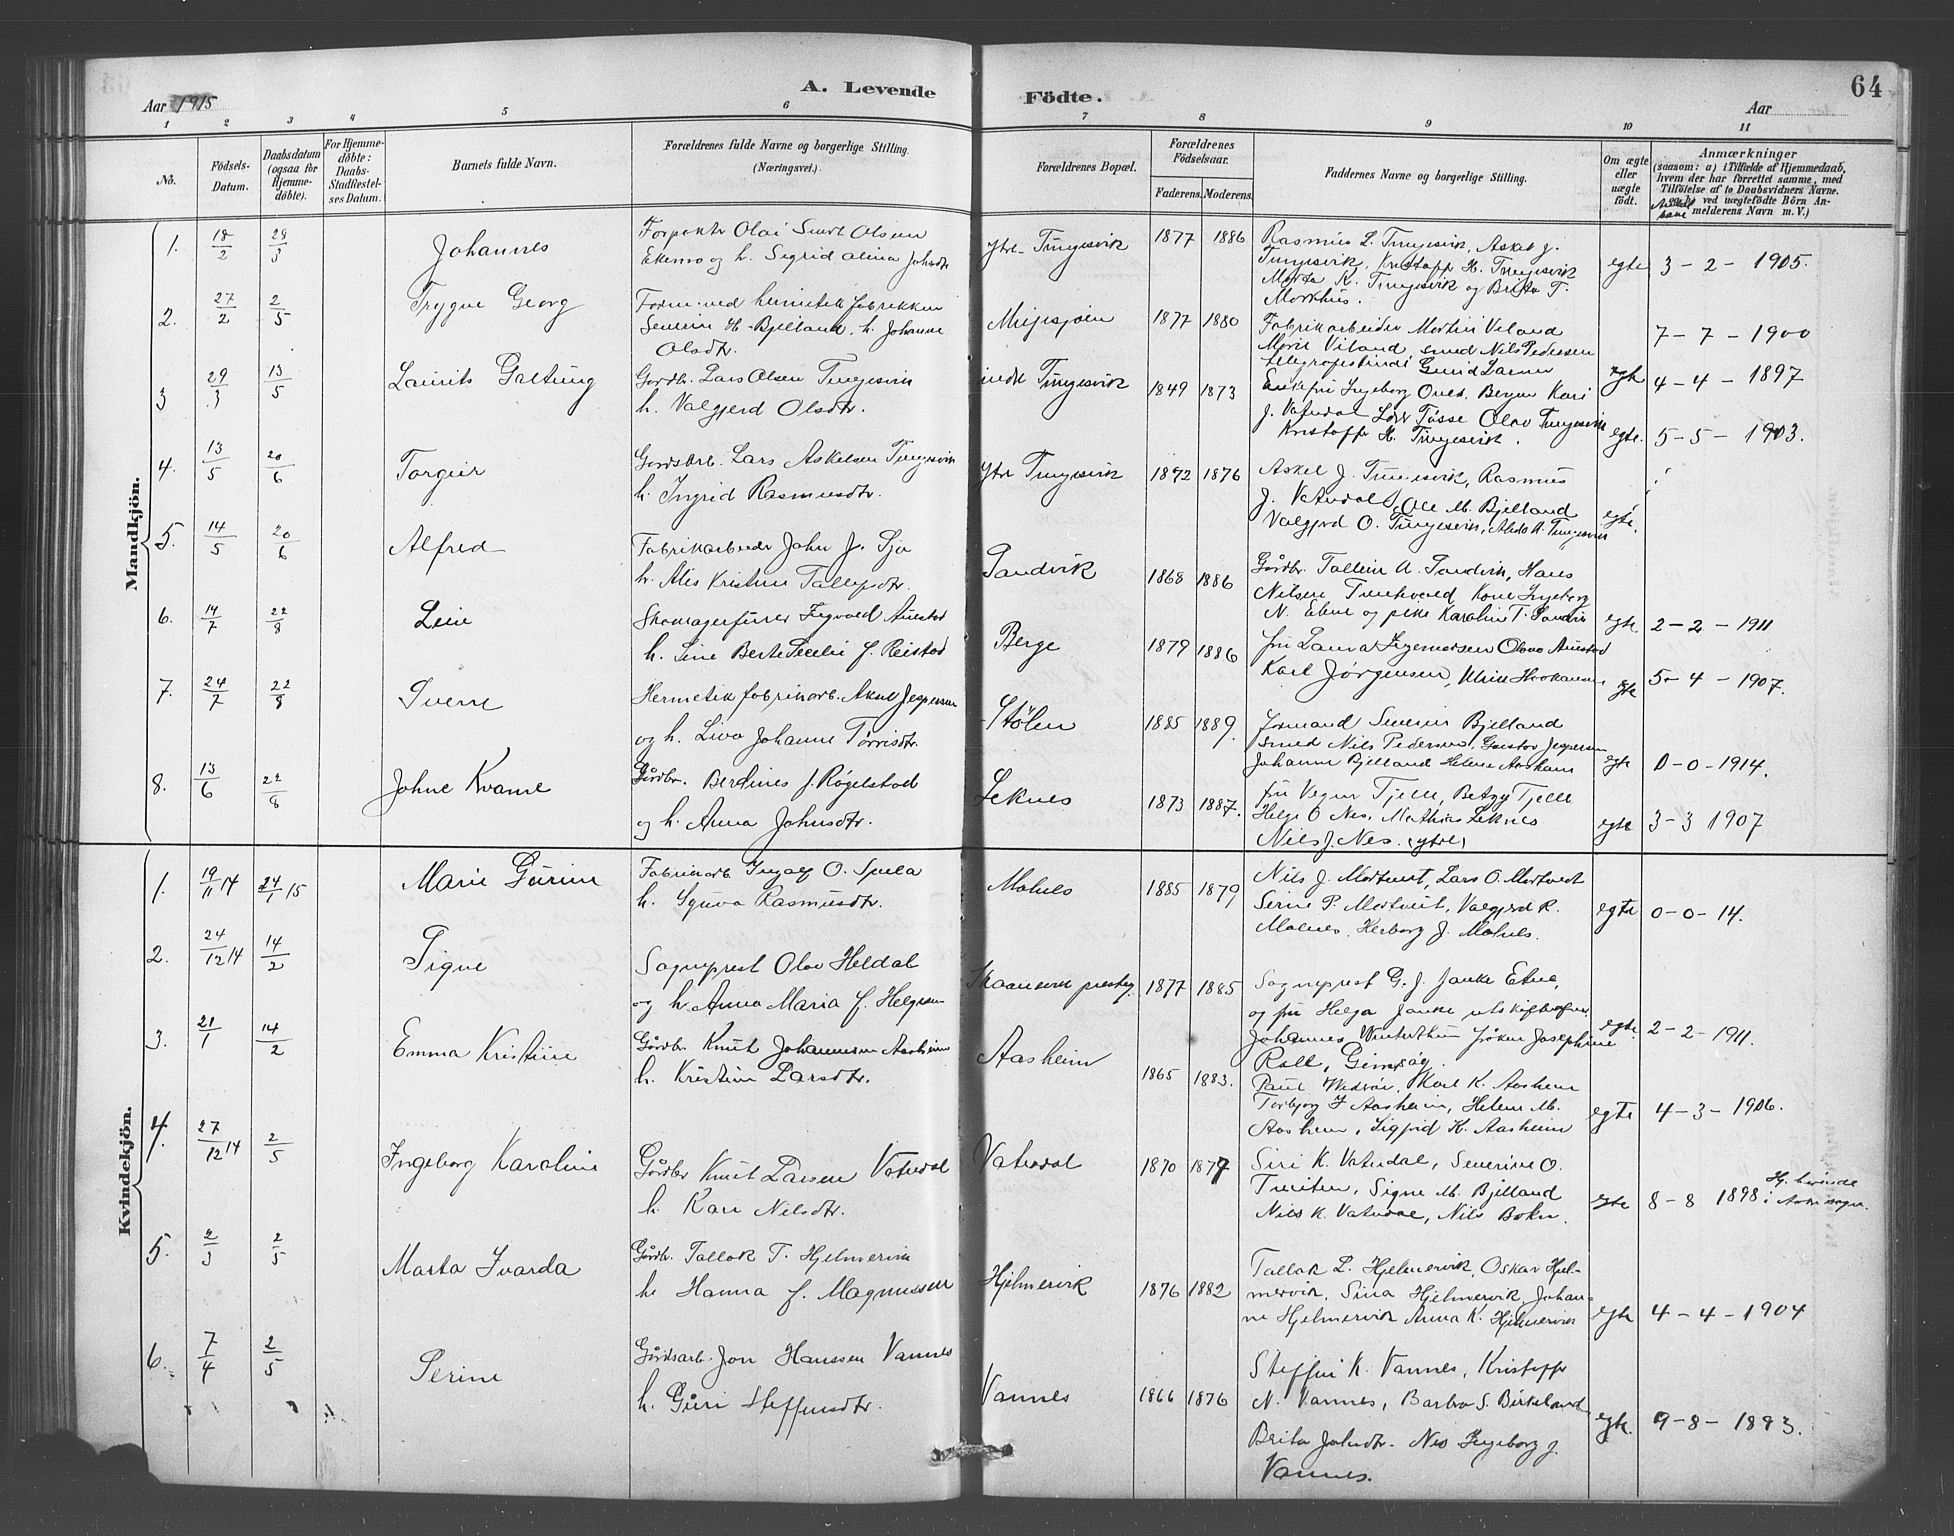 Aar 1915
A. Levende
Födte.
Aar
64
1 2 3 4 5 6 7 8 9 10 11
No.
Födsels-Datum.
Daabsdatum (ogsaa for Hjemme-döbte).
For Hjemme-döbte: Daabs-Stadfæstel-ses Datum.
Barnets fulde Navn.
Forældrenes fulde Navne og borgerlige Stilling.
(Næringsvei.)
Forældrenes Bopæl.
Forældrenes Födselsaar.
Faderens. Moderens.
Faddernes Navne og borgerlige Stilling.
Om ægte eller uægte födt.
Anmærkninger
(saasom: a) i Tilfælde af Hjemmedaab,
hvem der har forrettet samme, med
Tilföielse af to Daabsvidners Navne.
b) ved uægtefödte Börn An-
melderens Navn m. V.)
Mandkjön.
1. 18/2 28/3 Johannes
Olai Olsen
Ekemo og h. Sigrid Johsdtr
Ytre Tungesvik 1877 1886
Rasmus L. Tungesvik, Askel J.
Tungesvik, Kristoffr H. Tungesvik
Marta K. Tungesvik og Brita T.
Morkhus.
egte 3-2-1905.
2. 27/2 2/5 Trygve Georg
Form. ved hermetik fabrikken
Severin H. Bjelland, h. Johanne
Olsdtr.
1877 1880
Fabrikarbeider Martin Veland
Marie Veland smed Nils Pedersen
Larsen
egte 7-7-1900
3 29/3 13/5 Laurits Galtung
Gardbr. Lars Olsen Tungesvik
h. Valgjerd Olsdtr.
indr Tungesvik 1849 1873
Enkefru Ingeborg Bergen Kari
J. Vatndal Tøsse Olav Tungesvik
Kristoffr H. Tungesvik.
4-4-1897
egte. 5-5-1903.
4. 13/5 20/6 Torgeir
Gardsbrb. Lars Askelsen Tungesvik
h. Ingrid Rasmusdtr.
Ytr Tungesvik 1872 1876
Askel J. Tungesvik, Rasmus
J. Vatndal, Ole M. Bjelland
Valgjerd O. Tungesvik, Tungesvik
egte.
5. 14/5 20/6 Alfred
Fabrikarbeider John J. Sjo
h. Alis Kristine Tallefsdtr.
Sandvik 1868 1886
Gårdbr. Tallein A. Sandvik, Hans
Nilsen Kone Ingeborg
N. Ekene og pike Karoline T. Sandvik
egte 2-2-1911
6. 14/7 22/8 Leiv
Auestad
h. Sine Berte Secelie f. Reistad
Berge 1879 1886
fru Laura Olava Auestad
Karl Jørgensen,
egte 5-4-1907.
7. 24/7 22/8 Sverre
Hermetik fabrikarb. Aksel Jespersen
og h. Liva Johanne Tørrisdtr.
Stølen 1885 1889.
Formand Severin Bjelland
smed Nils Pedersen, Gustav Jespersen
Johanne Bjelland Helene Aasheim
egte 0-0-1914.
8. 13/6 22/8 Johne Kvame
Gårdbr. Berdines J. Røgelstad
og h. Anna Johnsdtr.
Leknes 1873 1887.
fru Tjelle, Betzy Tjelle
Helge O Nes, Mathias Leknes
Nils J. Nes. (ytre)
egte 3-3 1907
Kvindekjön.
1. 19/11 14 24/1 15 Marie Gurine
Fabrikarb. Ingolf O. Spela
h. Rasmusdtr.
Molnes 1885 1879
Nils J. Mortveit, Lars O. Mortveit
Serine P. Mortveit, Valgjerd R.
Molnes, Herborg J. Molnes.
egte 0-0-14.
2. 24/12 14 14/2 Signe
Sogneprest Olav Heldal
og h. Anna Maria f. Helgesen
Skaanevik prestg. 1877 1885
Sogneprest G. J. Janke Etne,
og fru Helga Janke
Johannes Winterthun frøken Josephine
Roll, Gimsøy.
egte. 2-2-1911.
3. 21/1 14/2 Emma Kristine
Gårdbr. Knut Johannesen Aasheim
h. Kristine Larsdtr.
Aasheim 1865 1883.
Paul Karl K. Aasheim
Torbjørg J Aasheim, Helene M.
Aasheim, Sigfrid K. Aasheim
egte 4-3-1906.
4. 27/12 14 2/5 Ingeborg Karoline
Gårdbr Knut Larsen Vatndal
h. Kari Nilsdtr.
Vatndal 1870 1877
Siri K. Vatndal, Severine O.
Signe M. Bjelland
Nils K. Vatndal, Nils Bokn.
egte 8-8 1898
5. 2/3 2/5 Marta Ivarda
Gårdbr. Tallak T. Hjelmervik
h. Hanna f. Magnussen
Hjelmervik 1876 1882
Tallak L. Hjelmervik, Oskar Hjel-
mervik, Sina Hjelmervik, Johan-
ne Hjelmervik Anna K. Hjelmervik
egte 4-4-1904
6. 7/4 2/5 Serine
Gårdsarb. Jon Hanssen Vannes
h. Guri Steffensdtr.
Vannes 1866 1876
Steffen K. Vannes, Kristoffr
N. Vannes, Barbro S. Birkeland
Brita Johsdtr. Nes Ingeborg J.
Vannes.
egte. 9-8-1893.